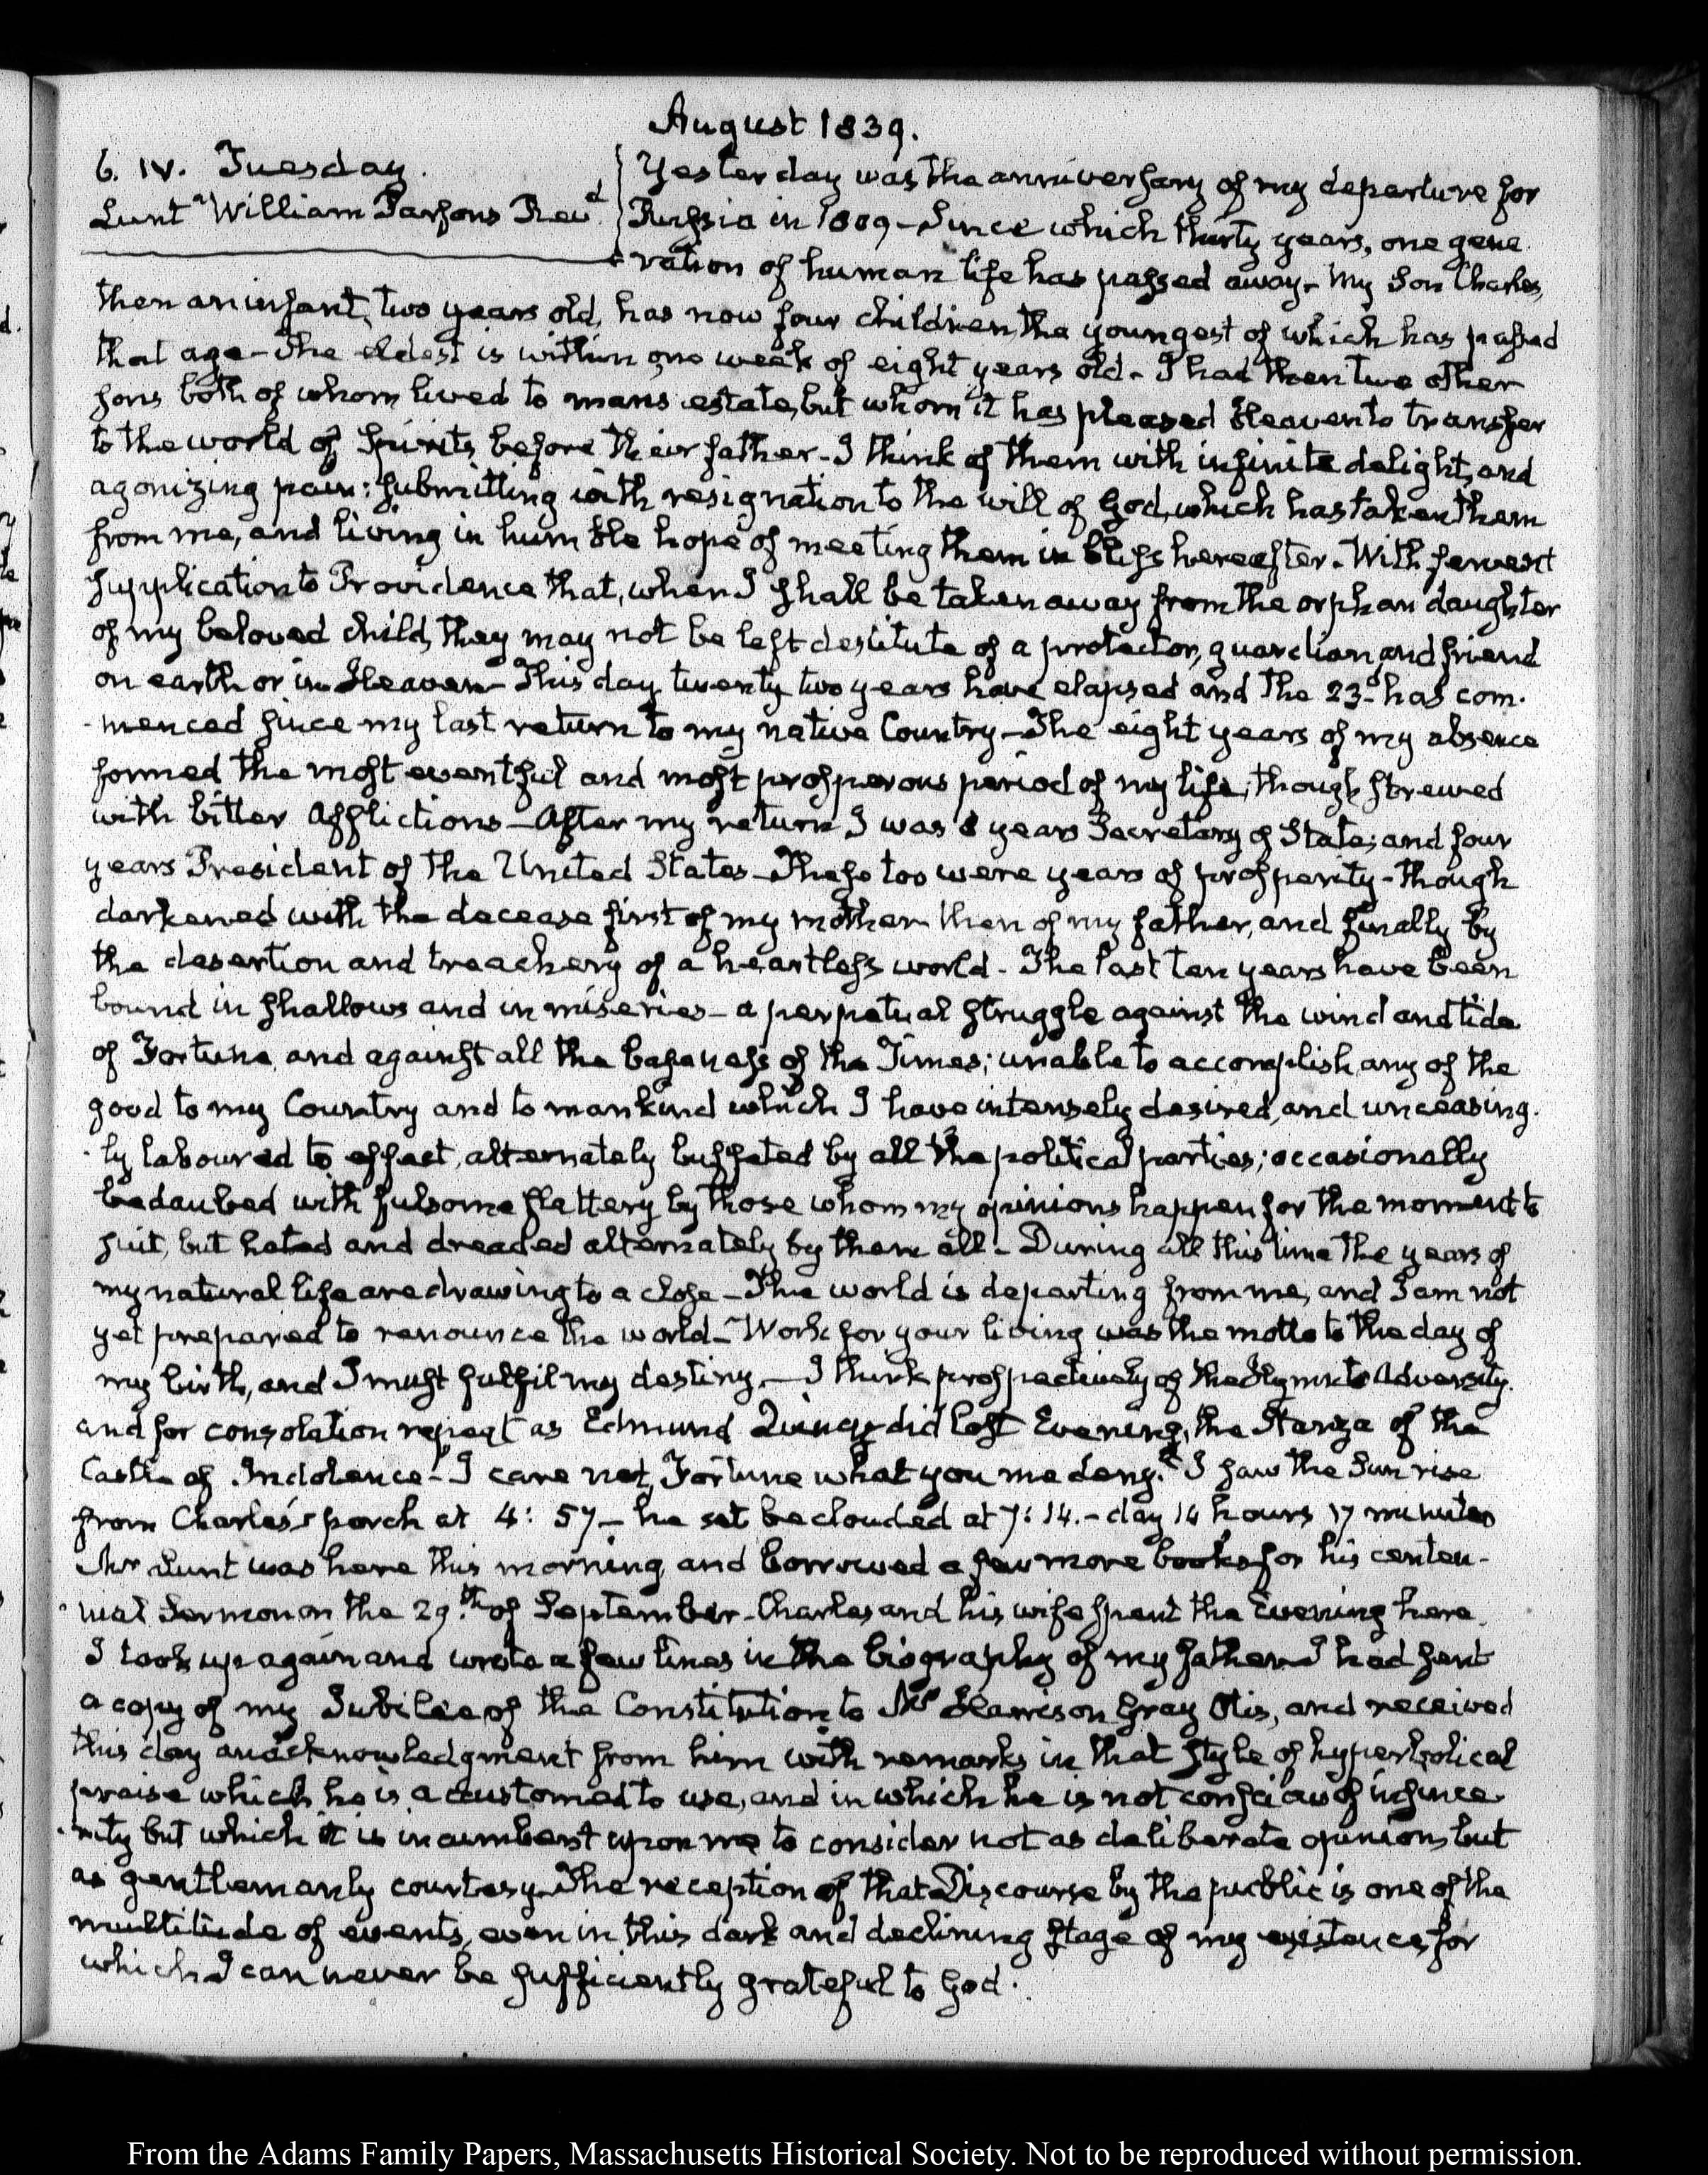 August 1839.
6. IV. Tuesday.
Lunt William Parsons Revd.
Yesterday was the anniversary of my departure for
Russia in 1809 - Since which thirty years, one gene-
ration of human life has passed away - My Son Charles,
then an infant, two years old, has now four children, the youngest of which has passed
that age - The eldest is within one week of eight years old - I had then two other
sons both of whom lived to mans estate, but whom it has pleased Heaven to transfer
to the world of Spirits before their father - I think of them with infinite delight, and
agonizing pain: submitting with resignation to the will of God, which has taken them
from me, and living in humble hope of meeting them in bliss hereafter. With fervent
supplication to Providence that, when I shall be taken away from the orphan daughter
of my beloved child, they may not be left destitute of a protector, guardian, and friend
on earth or in Heaven - This day twenty two years have elapsed and the 23d has com-
-menced since my last return to my native Country - The eight years of my absence
formed the most eventful and most prosperous period of my life, though strewed
with bitter afflictions - After my return I was 8 years Secretary of State; and four
years President of the United States - These too were years of prosperity - though
darkened with the decease first of my mother then of my father, and finally by
the desertion and treachery of a heartless world - The last ten years have been
bound in shallows and in miseries - a perpetual struggle against the wind and tide
of Fortune, and against all the baseness of the Times; unable to accomplish any of the
good to my Country and to mankind which I have intensely desired, and unceasing-
-ly laboured to effect, alternately buffeted by all the political parties; occasionally
bedaubed with fulsome flattery by those whom my opinions happen for the moment to
suit, but hated and dreaded alternately by them all - During all this time the years of
my natural life are drawing to a close - The world is departing from me, and I am not
yet prepared to renounce the world - Work for your living was the motto to the day of
my birth, and I must fulfil my destiny. - I think prospectively of the Hymn to Adversity.
and for consolation repeat as Edmund Quincy did last Evening, the Stanza of the
Castle of Indolence - "I care not, Fortune what you me deny." I saw the Sun rise
from Charles's porch at 4: 57 - he set beclouded at 7: 14. - day 14 hours 17 minutes
Mr Lunt was here this morning, and borrowed a few more books for his centen-
-nial Sermon on the 29th of September - Charles and his wife spent the Evening here.
I took up again and wrote a few lines in the biography of my father - I had sent
a copy of my Jubilee of the Constitution to Mr Harrison Gray Otis, and received
this day an acknowledgment from him with remarks in that style of hyperbolical
praise which he is accustomed to use, and in which he is not conscious of insince-
-rity but which it is incumbent upon me to consider not as deliberate opinion, but
as gentlemanly courtesy - The reception of that Discourse by the public is one of the
multitude of events, even in this dark and declining stage of my existence, for
which I can never be sufficiently grateful to God.
From the Adams Family Papers, Massachusetts Historical Society. Not to be reproduced without permission.